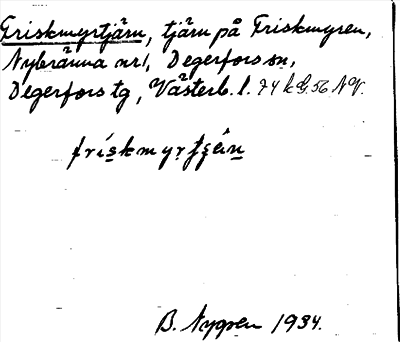 Friskmyrtjärn, tjärn på Friskmyren,
Nybränna nr1, Degerfors sn,
Degerfors tg, Västerb. l. 74 k G. 56 NV.
friskmyrtjän
B. Nygren 1934.